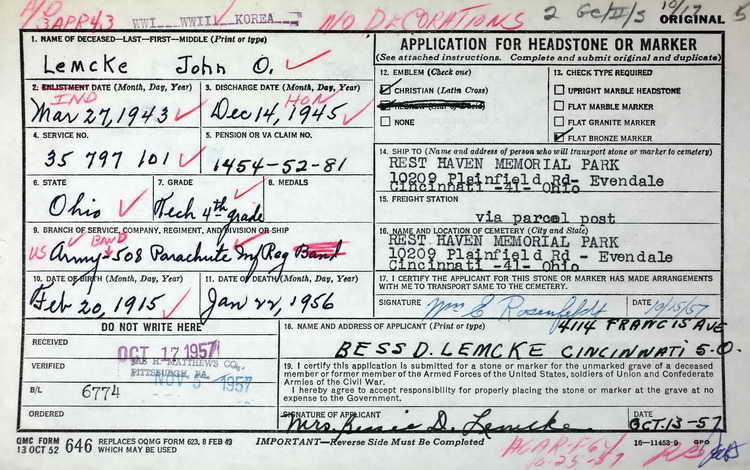 3 APR 43 WWI WWII ✓ KOREA NO DECORATIONS 2 GC/II/S 10/17 5
ORIGINAL
1. NAME OF DECEASED—LAST—FIRST—MIDDLE (Print or type)
Lemcke John O. ✓
APPLICATION FOR HEADSTONE OR MARKER
(See attached instructions. Complete and submit original and duplicate)
2. ENLISTMENT DATE (Month, Day, Year)
IND
Mar 27, 1943 ✓
3. DISCHARGE DATE (Month, Day, Year)
HON
Dec 14, 1945 ✓
12. EMBLEM (Check one)
☑ CHRISTIAN (Latin Cross)
☐ NONE
13. CHECK TYPE REQUIRED
☐ UPRIGHT MARBLE HEADSTONE
☐ FLAT MARBLE MARKER
☐ FLAT GRANITE MARKER
☑ FLAT BRONZE MARKER
4. SERVICE NO.
35 797 101 ✓
5. PENSION OR VA CLAIM NO.
1454-52-81
14. SHIP TO (Name and address of person who will transport stone or marker to cemetery)
REST HAVEN MEMORIAL PARK
10209 Plainfield Rd- Evendale
Cincinnati -41- Ohio
6. STATE
Ohio ✓
7. GRADE
Tech 4th grade
8. MEDALS
15. FREIGHT STATION
via parcel post
9. BRANCH OF SERVICE, COMPANY, REGIMENT, AND DIVISION OR SHIP
BAND
US Army - 508 Parachute Inf Reg Band
16. NAME AND LOCATION OF CEMETERY (City and State)
REST HAVEN MEMORIAL PARK
10209 Plainfield Rd - Evendale
Cincinnati -41- Ohio
10. DATE OF BIRTH (Month, Day, Year)
Feb 20, 1915 ✓
11. DATE OF DEATH (Month, Day, Year)
Jan 22, 1956
17. I CERTIFY THE APPLICANT FOR THIS STONE OR MARKER HAS MADE ARRANGEMENTS
WITH ME TO TRANSPORT SAME TO THE CEMETERY.
SIGNATURE Wm E Rosenfeldt DATE 10/15/57
DO NOT WRITE HERE
RECEIVED
OCT 17 1957
VERIFIED
MATTHEWS CO.,
PITTSBURGH, PA.
NOV 5 1957
B/L 6774
ORDERED
18. NAME AND ADDRESS OF APPLICANT (Print or type)
4114 FRANCIS AVE
BESS D. LEMCKE CINCINNATI 5-O.
19. I certify this application is submitted for a stone or marker for the unmarked grave of a deceased
member or former member of the Armed Forces of the United States, soldiers of Union and Confederate
Armies of the Civil War.
I hereby agree to accept responsibility for properly placing the stone or marker at the grave at no
expense to the Government.
SIGNATURE OF APPLICANT
Mrs. Bessie D. Lemcke
DATE
OCT. 13-57
QMC FORM
13 OCT 52 646 REPLACES OQMG FORM 623, 8 FEB 49
WHICH MAY BE USED
IMPORTANT—Reverse Side Must be Completed
16—11453-9 GPO
10-25-57